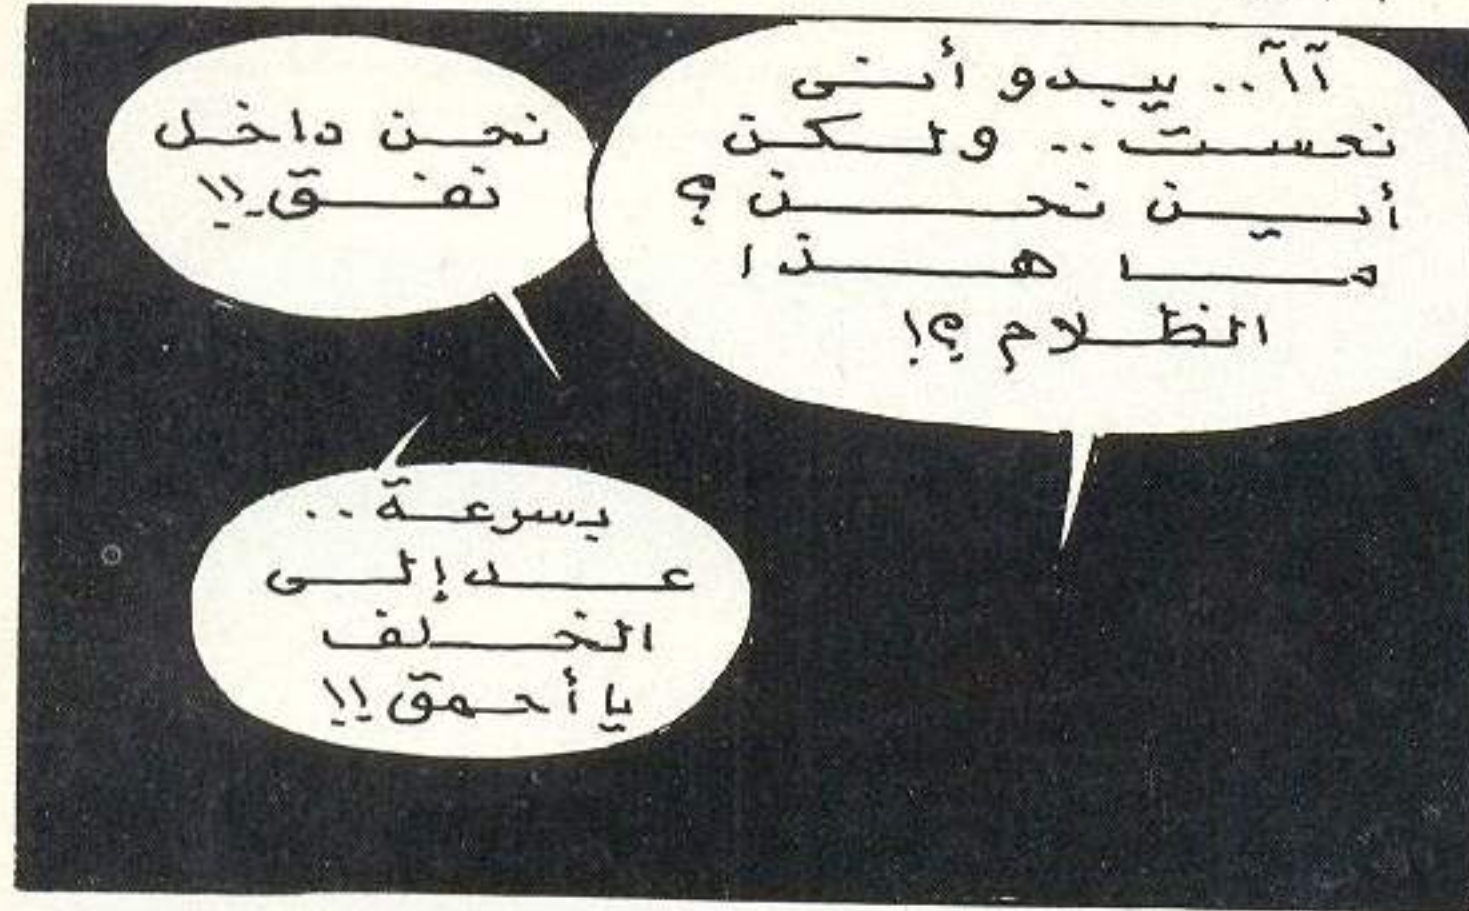 آآ.. يبدو أننى
نعست.. ولكن
أين نحن؟
ما هذا
الظلام؟!
نحن داخل
نفق!!
بسرعة..
عد إلى
الخلف
يا أحمق!!